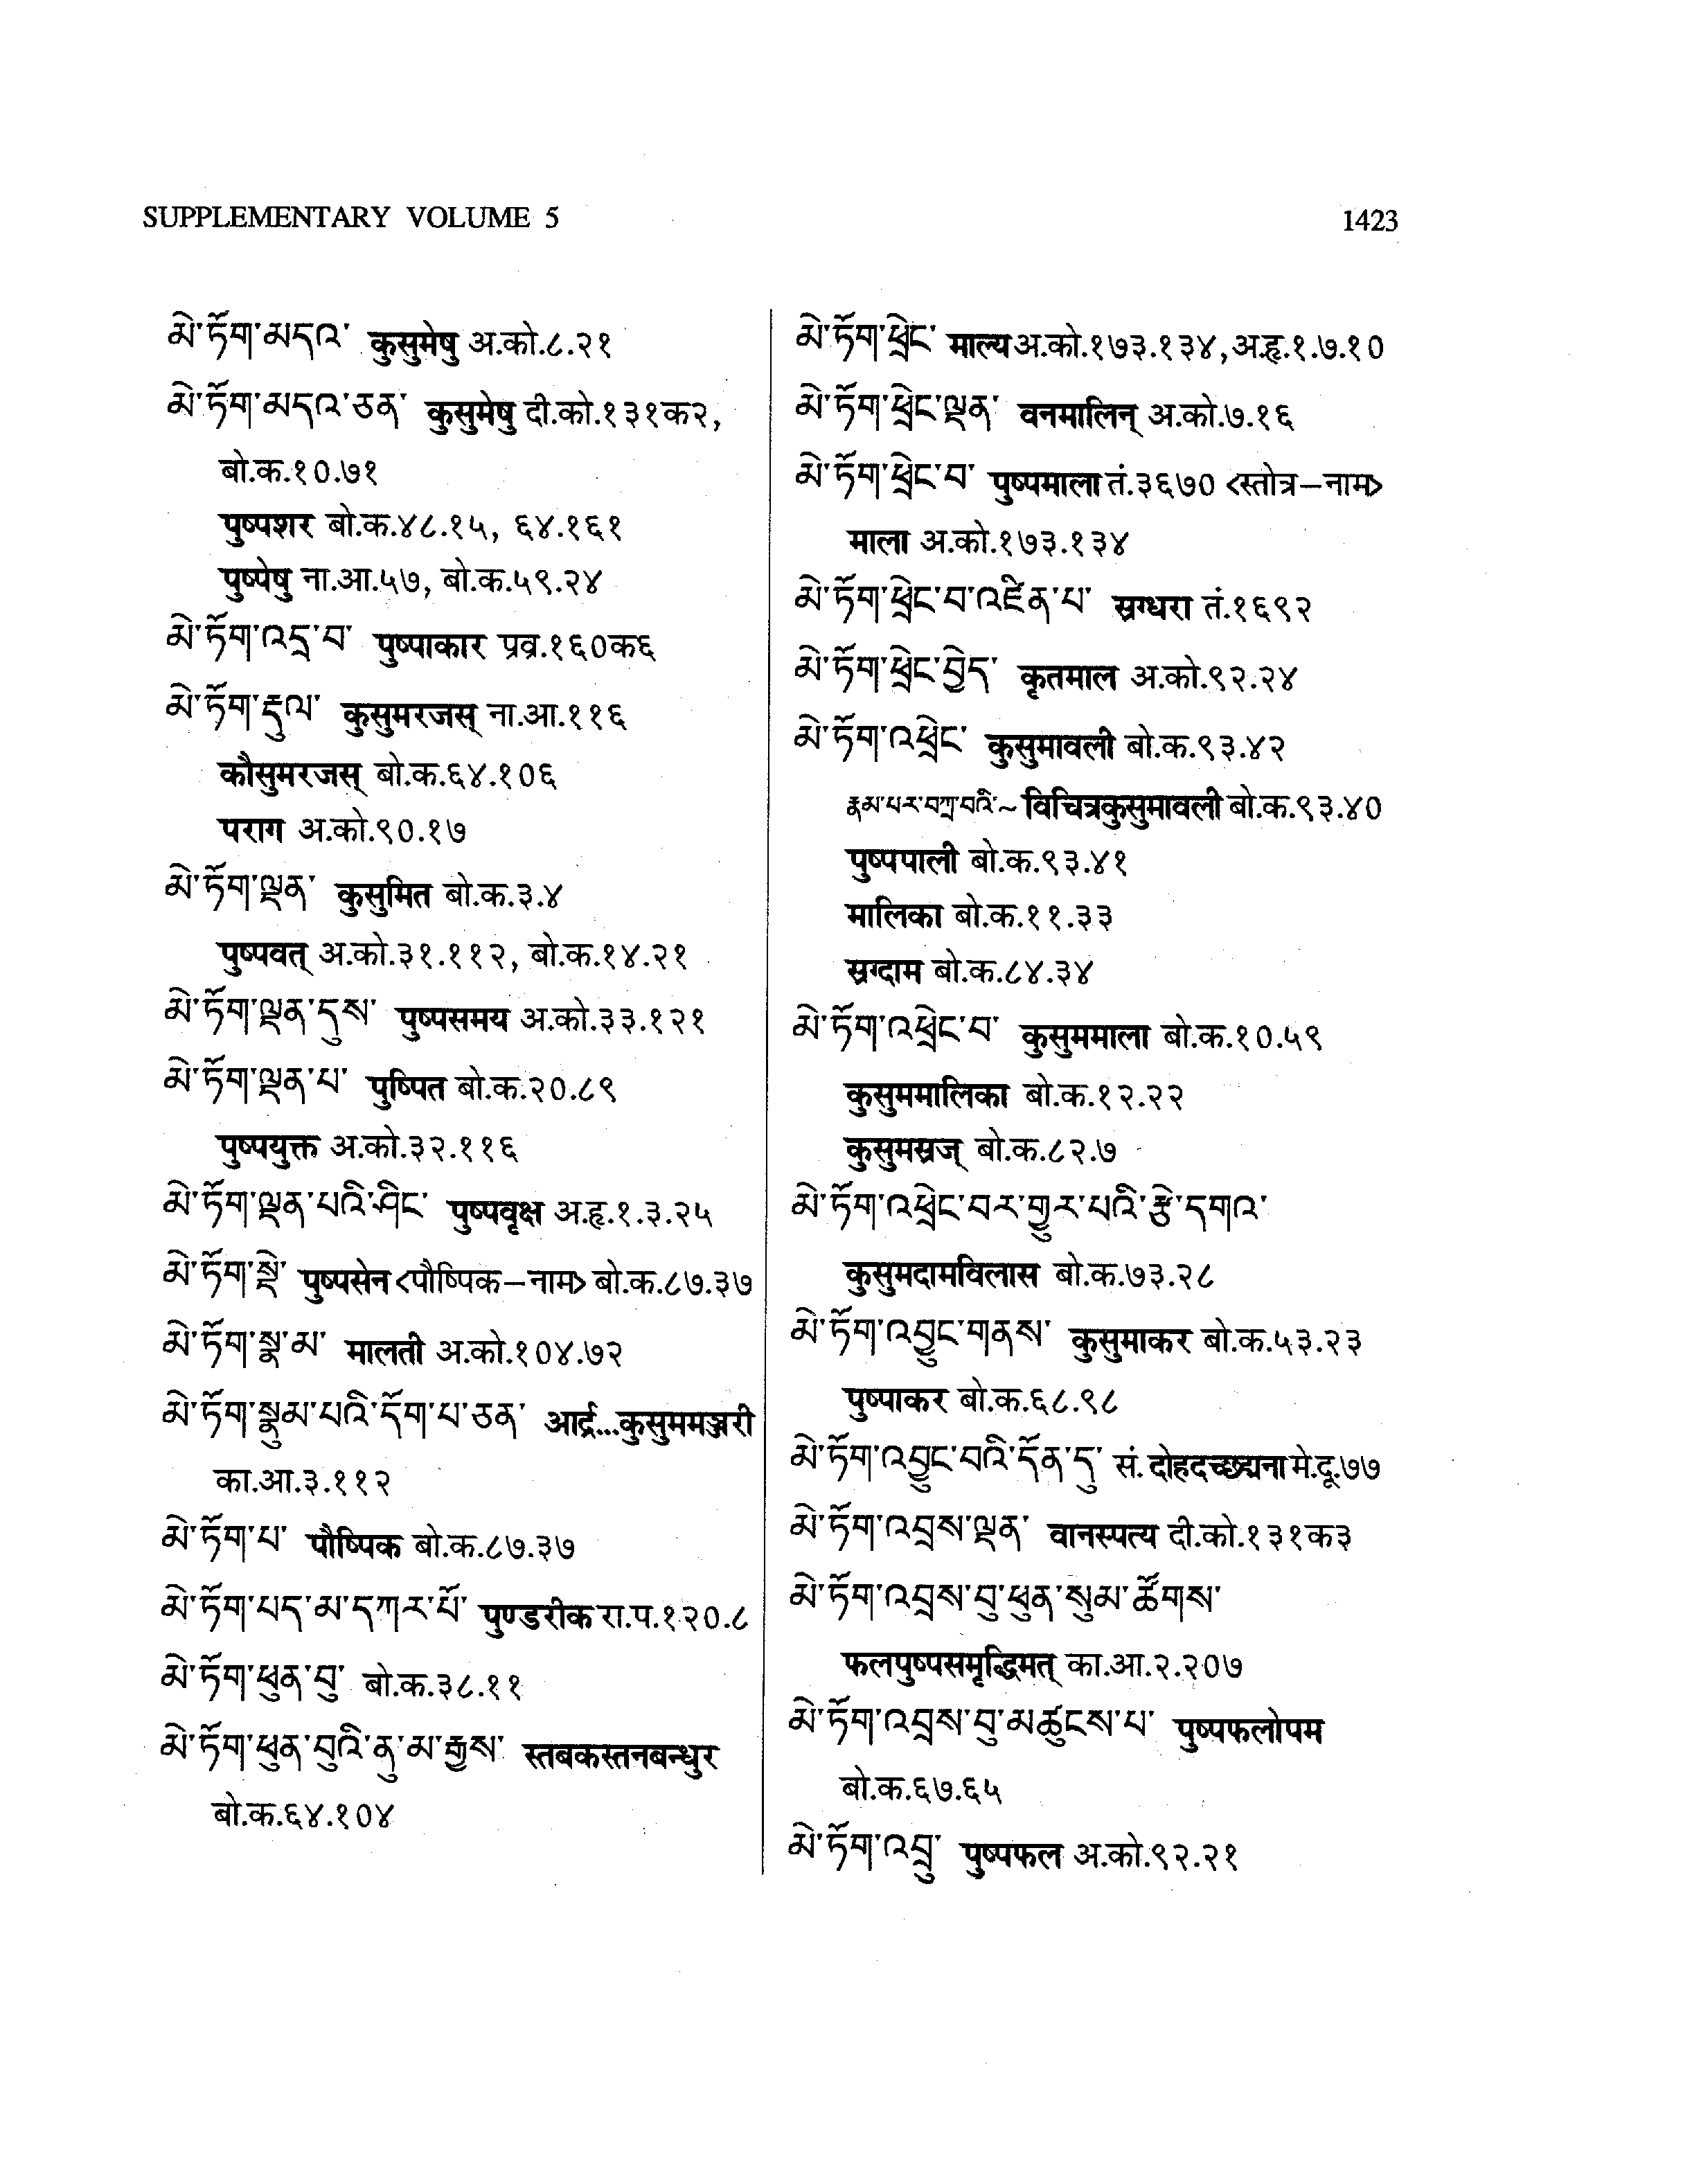 SUPPLEMENTARY VOLUME 5
1423
མེ་ཏོག་མདའ་ कुसुमेषु अ.को.८.२१
མེ་ཏོག་མདའ་ཅན་ कुसुमेषु दी.को.१३१क२,
बो.क.१०.७१
पुष्पशर बो.क.४८.१५, ६४.१६१
पुष्पेषु ना.आ.५७, बो.क.५९.२४
མེ་ཏོག་འདྲ་བ་ पुष्पाकार प्रव्र.१६०क६
མེ་ཏོག་རྡུལ་ कुसुमरजस् ना.आ.११६
कौसुमरजस् बो.क.६४.१०६
पराग अ.को.९०.१७
མེ་ཏོག་ལྡན་ कुसुमित बो.क.३.४
पुष्पवत् अ.को.३१.११२, बो.क.१४.२१
མེ་ཏོག་ལྡན་དུས་ पुष्पसमय अ.को.३३.१२१
མེ་ཏོག་ལྡན་པ་ पुष्पित बो.क.२०.८९
पुष्पयुक्त अ.को.३२.११६
མེ་ཏོག་ལྡན་པའི་ཤིང་ पुष्पवृक्ष अ.हृ.१.३.२५
མེ་ཏོག་སྡེ་ पुष्पसेन <पौष्पिक–नाम> बो.क.८७.३७
མེ་ཏོག་སྣ་མ་ मालती अ.को.१०४.७२
མེ་ཏོག་སྣུམ་པའི་དོག་པ་ཅན་ आर्द्र...कुसुममञ्जरी
का.आ.३.११२
མེ་ཏོག་པ་ पौष्पिक बो.क.८७.३७
མེ་ཏོག་པད་མ་དཀར་པོ་ पुण्डरीक रा.प.१२०.८
མེ་ཏོག་ཕུན་བུ་ बो.क.३८.११
མེ་ཏོག་ཕུན་བུའི་ནུ་མ་རྒྱས་ स्तबकस्तनबन्धुर
बो.क.६४.१०४
མེ་ཏོག་ཕྲེང་ माल्य अ.को.१७३.१३४, अ.हृ.१.७.१०
མེ་ཏོག་ཕྲེང་ལྡན་ वनमालिन् अ.को.७.१६
མེ་ཏོག་ཕྲེང་བ་ पुष्पमाला तं.३६७० <स्तोत्र–नाम>
माला अ.को.१७३.१३४
མེ་ཏོག་ཕྲེང་བ་འཛིན་པ་ स्रग्धरा तं.१६९२
མེ་ཏོག་ཕྲེང་བྱེད་ कृतमाल अ.को.९२.२४
མེ་ཏོག་འཕྲེང་ कुसुमावली बो.क.९३.४२
རྣམ་པར་བཀྲ་བའི་~ विचित्रकुसुमावली बो.क.९३.४०
पुष्पपाली बो.क.९३.४१
मालिका बो.क.११.३३
स्रग्दाम बो.क.८४.३४
མེ་ཏོག་འཕྲེང་བ་ कुसुममाला बो.क.१०.५९
कुसुममालिका बो.क.१२.२२
कुसुमस्रज् बो.क.८२.७
མེ་ཏོག་འཕྲེང་བར་གྱུར་པའི་རྩེ་དགའ་
कुसुमदामविलास बो.क.७३.२८
མེ་ཏོག་འབྱུང་གནས་ कुसुमाकर बो.क.५३.२३
पुष्पाकर बो.क.६८.९८
མེ་ཏོག་འབྱུང་བའི་དོན་དུ་ सं. दोहदच्छद्मना मे.दू.७७
མེ་ཏོག་འབྲས་ལྡན་ वानस्पत्य दी.को.१३१क३
མེ་ཏོག་འབྲས་བུ་ཕུན་སུམ་ཚོགས་
फलपुष्पसमृद्धिमत् का.आ.२.२०७
མེ་ཏོག་འབྲས་བུ་མཚུངས་པ་ पुष्पफलोपम
बो.क.६७.६५
མེ་ཏོག་འབྲུ་ पुष्पफल अ.को.९२.२१